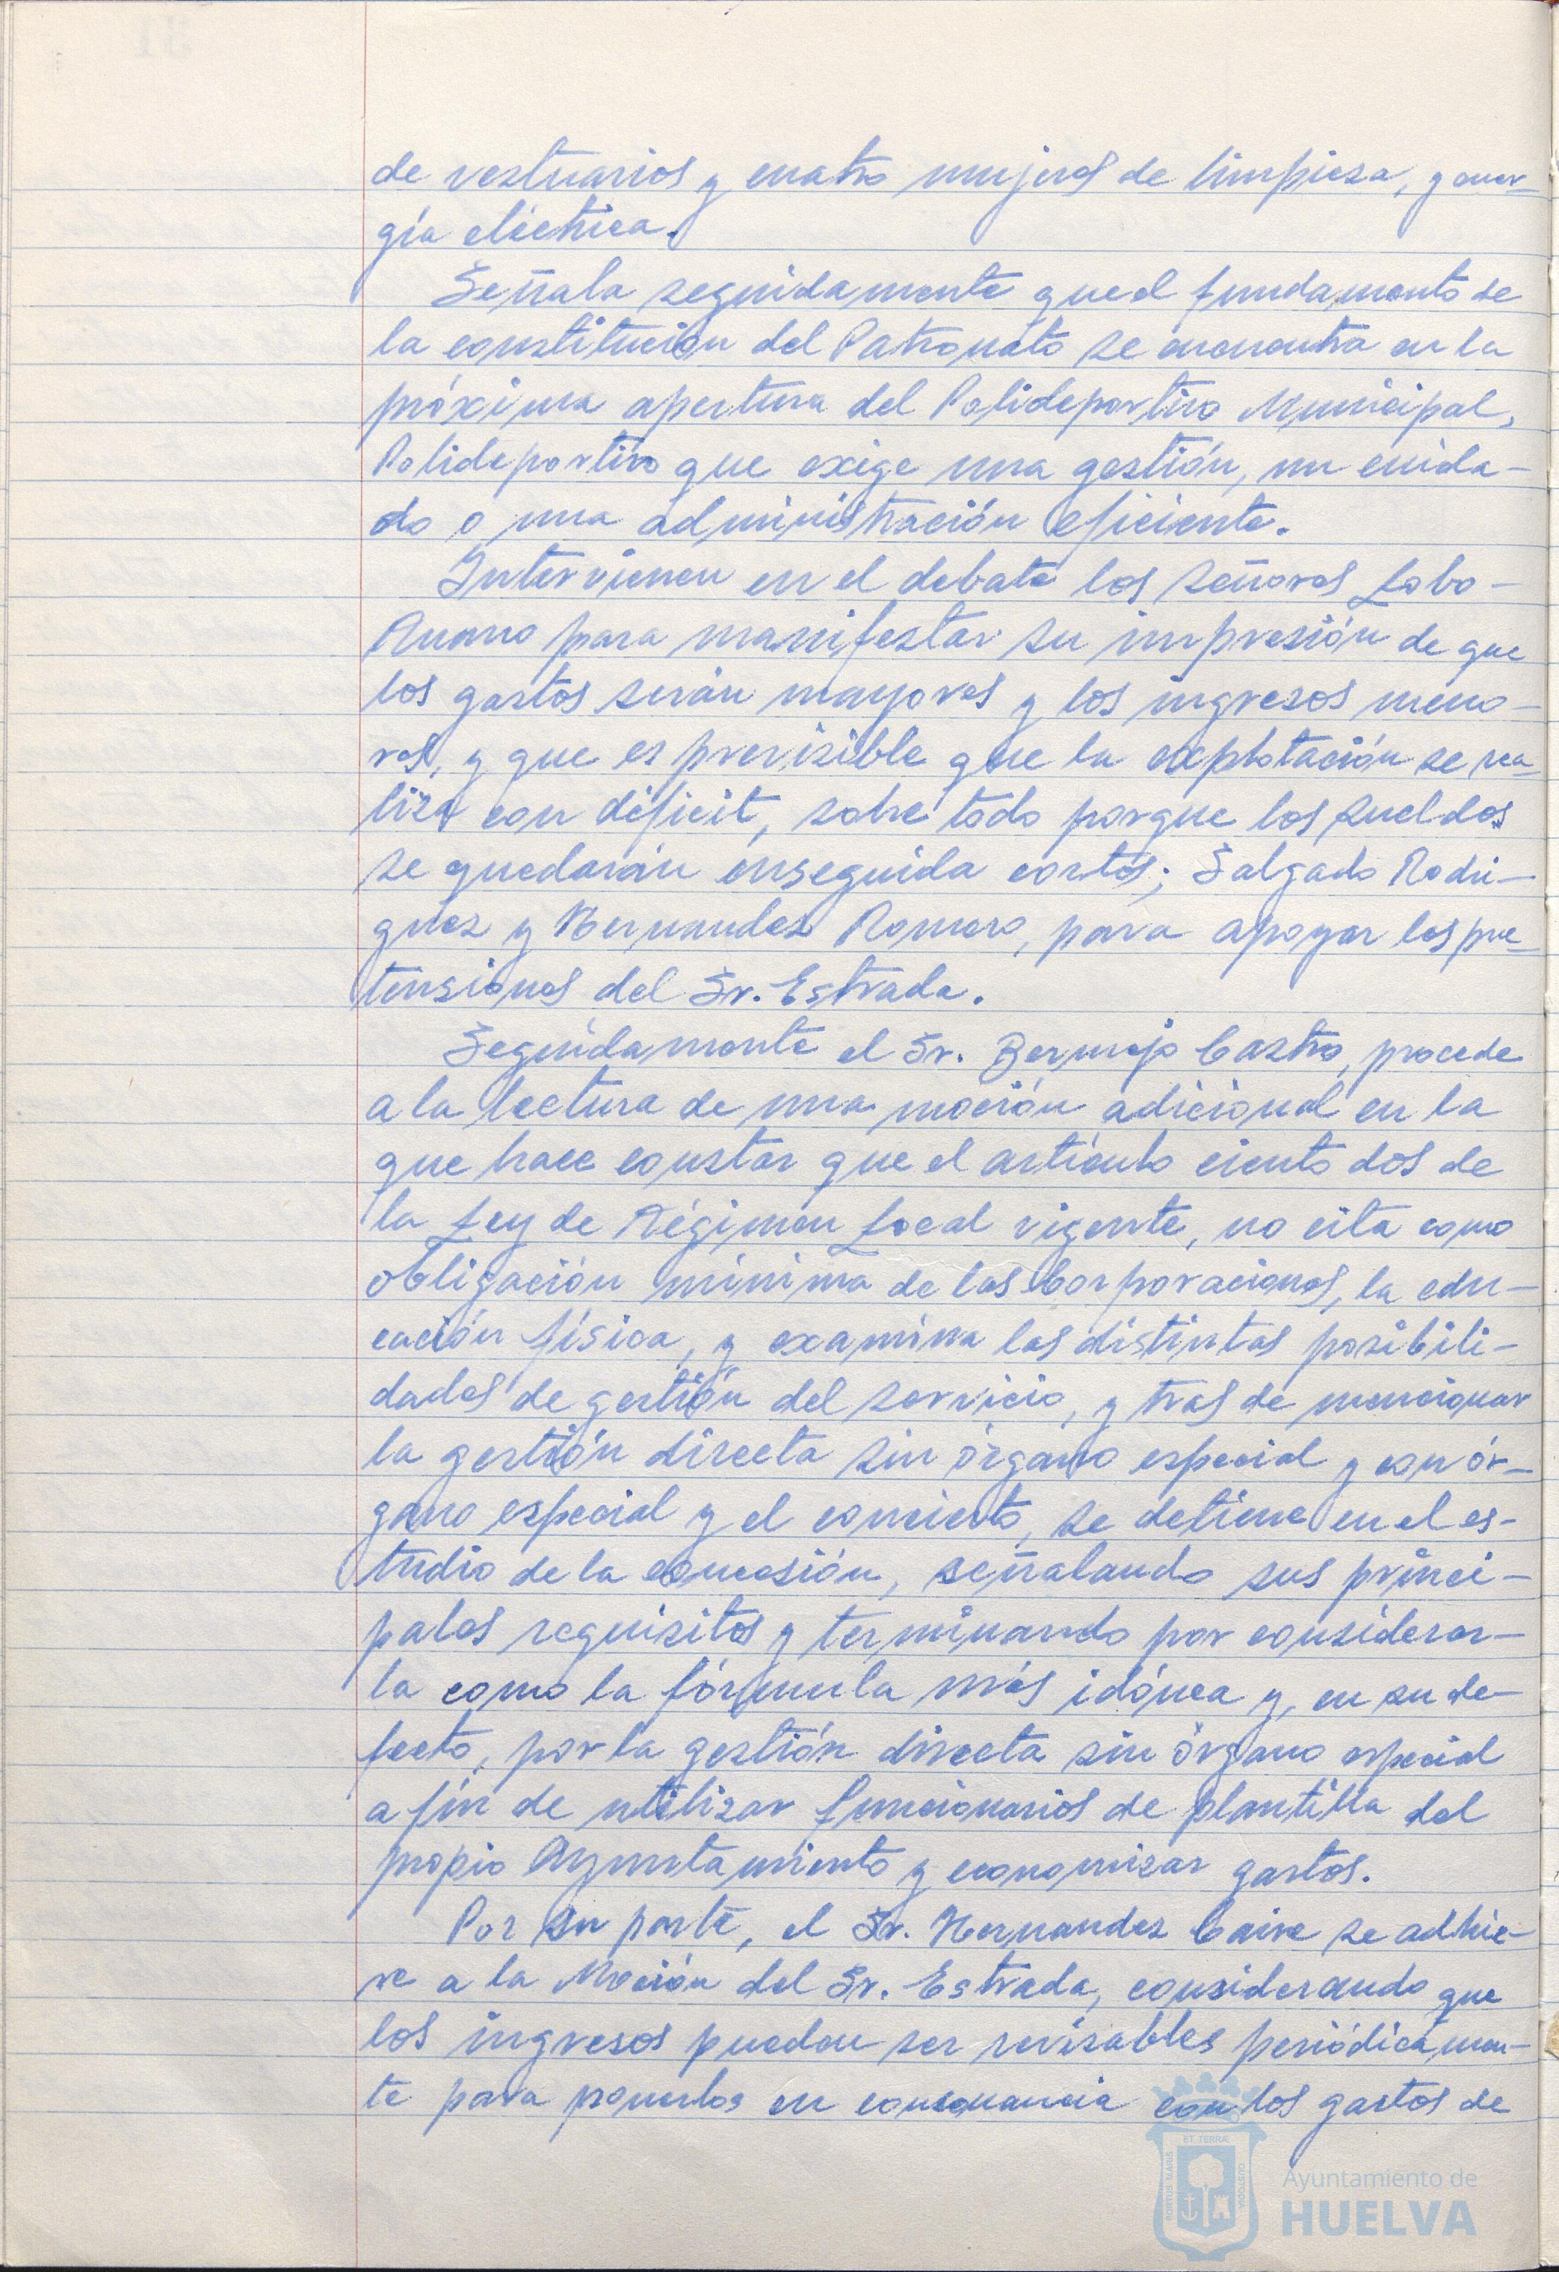 de vestuarios y cuatro mujeres de limpieza, y ener-
gía eléctrica.
Señala seguidamente que el fundamento de
la constitución del Patronato se encuentra en la
próxima apertura del Polideportivo Municipal,
Polideportivo que exige una gestión, un cuida-
do o una administración eficiente.
Intervienen en el debate los señores Lobo-
Ruano para manifestar su impresión de que
los gastos serán mayores y los ingresos meno-
res, y que es previsible que la explotación se rea-
liza con déficit, sobre todo porque los sueldos
se quedarán enseguida cortos; Salgado Rodri-
guez y Hernandez Romero, para apoyar las pre-
tensiones del Sr. Estrada.
Seguidamente el Sr. Bermejo Castro, procede
a la lectura de una moción adicional en la
que hace constar que el artículo ciento dos de
la Ley de Régimen Local vigente, no cita como
obligación mínima de las Corporaciones, la edu-
cación física, y examina las distintas posibili-
dades de gestión del servicio, y tras de mencionar
la gestión directa sin órgano especial y con ór-
gano especial y el concierto, se detiene en el es-
tudio de la concesión, señalando sus princi-
pales requisitos y terminando por considerar-
la como la fórmula más idónea y, en su de-
fecto, por la gestión directa sin órgano especial
a fin de utilizar funcionarios de plantilla del
propio Ayuntamiento y economizar gastos.
Por su parte, el Sr. Hernandez Caire se adhie-
re a la Moción del Sr. Estrada, considerando que
los ingresos puedan ser revisables periódicamen-
te para ponerlos en consonancia con los gastos de
ET TERRAE
PORTUS MARIS
CUSTODIA
Ayuntamiento de
HUELVA